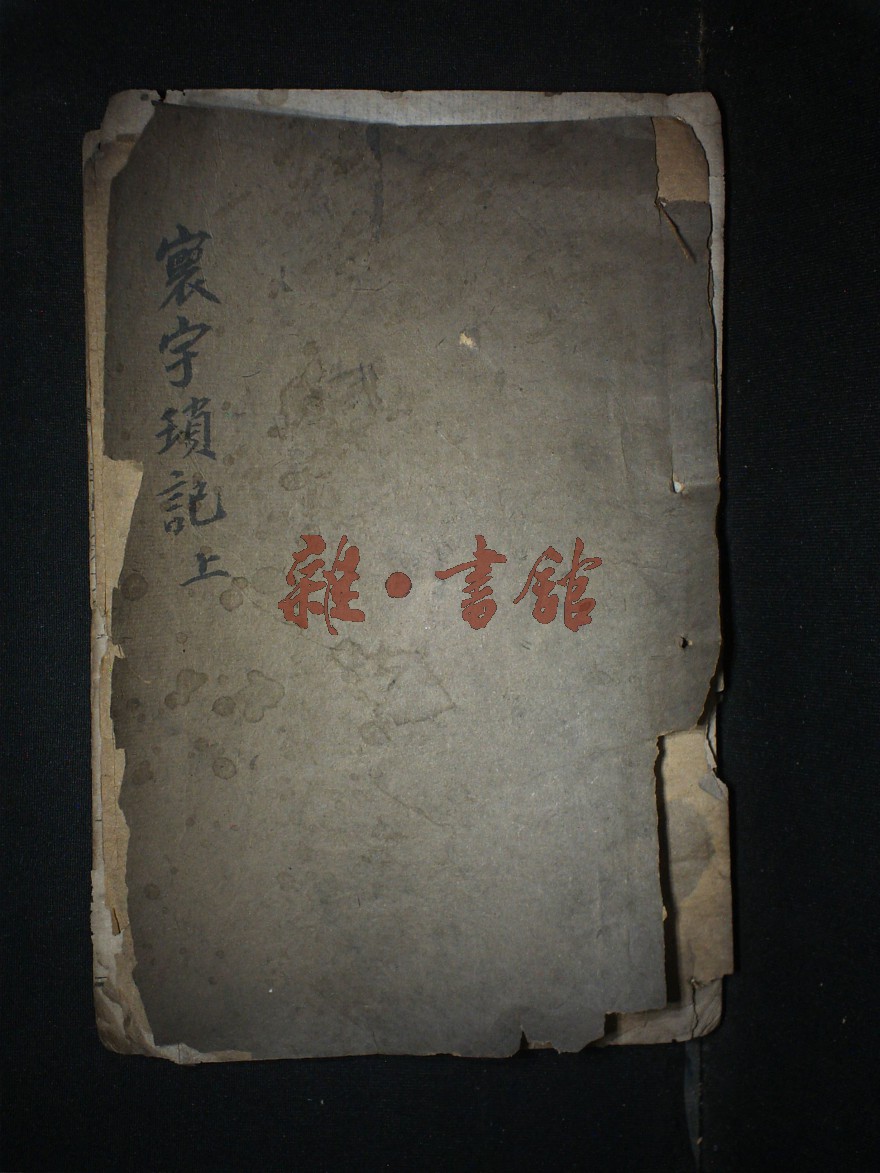 寰宇瑣記上
雜·書館